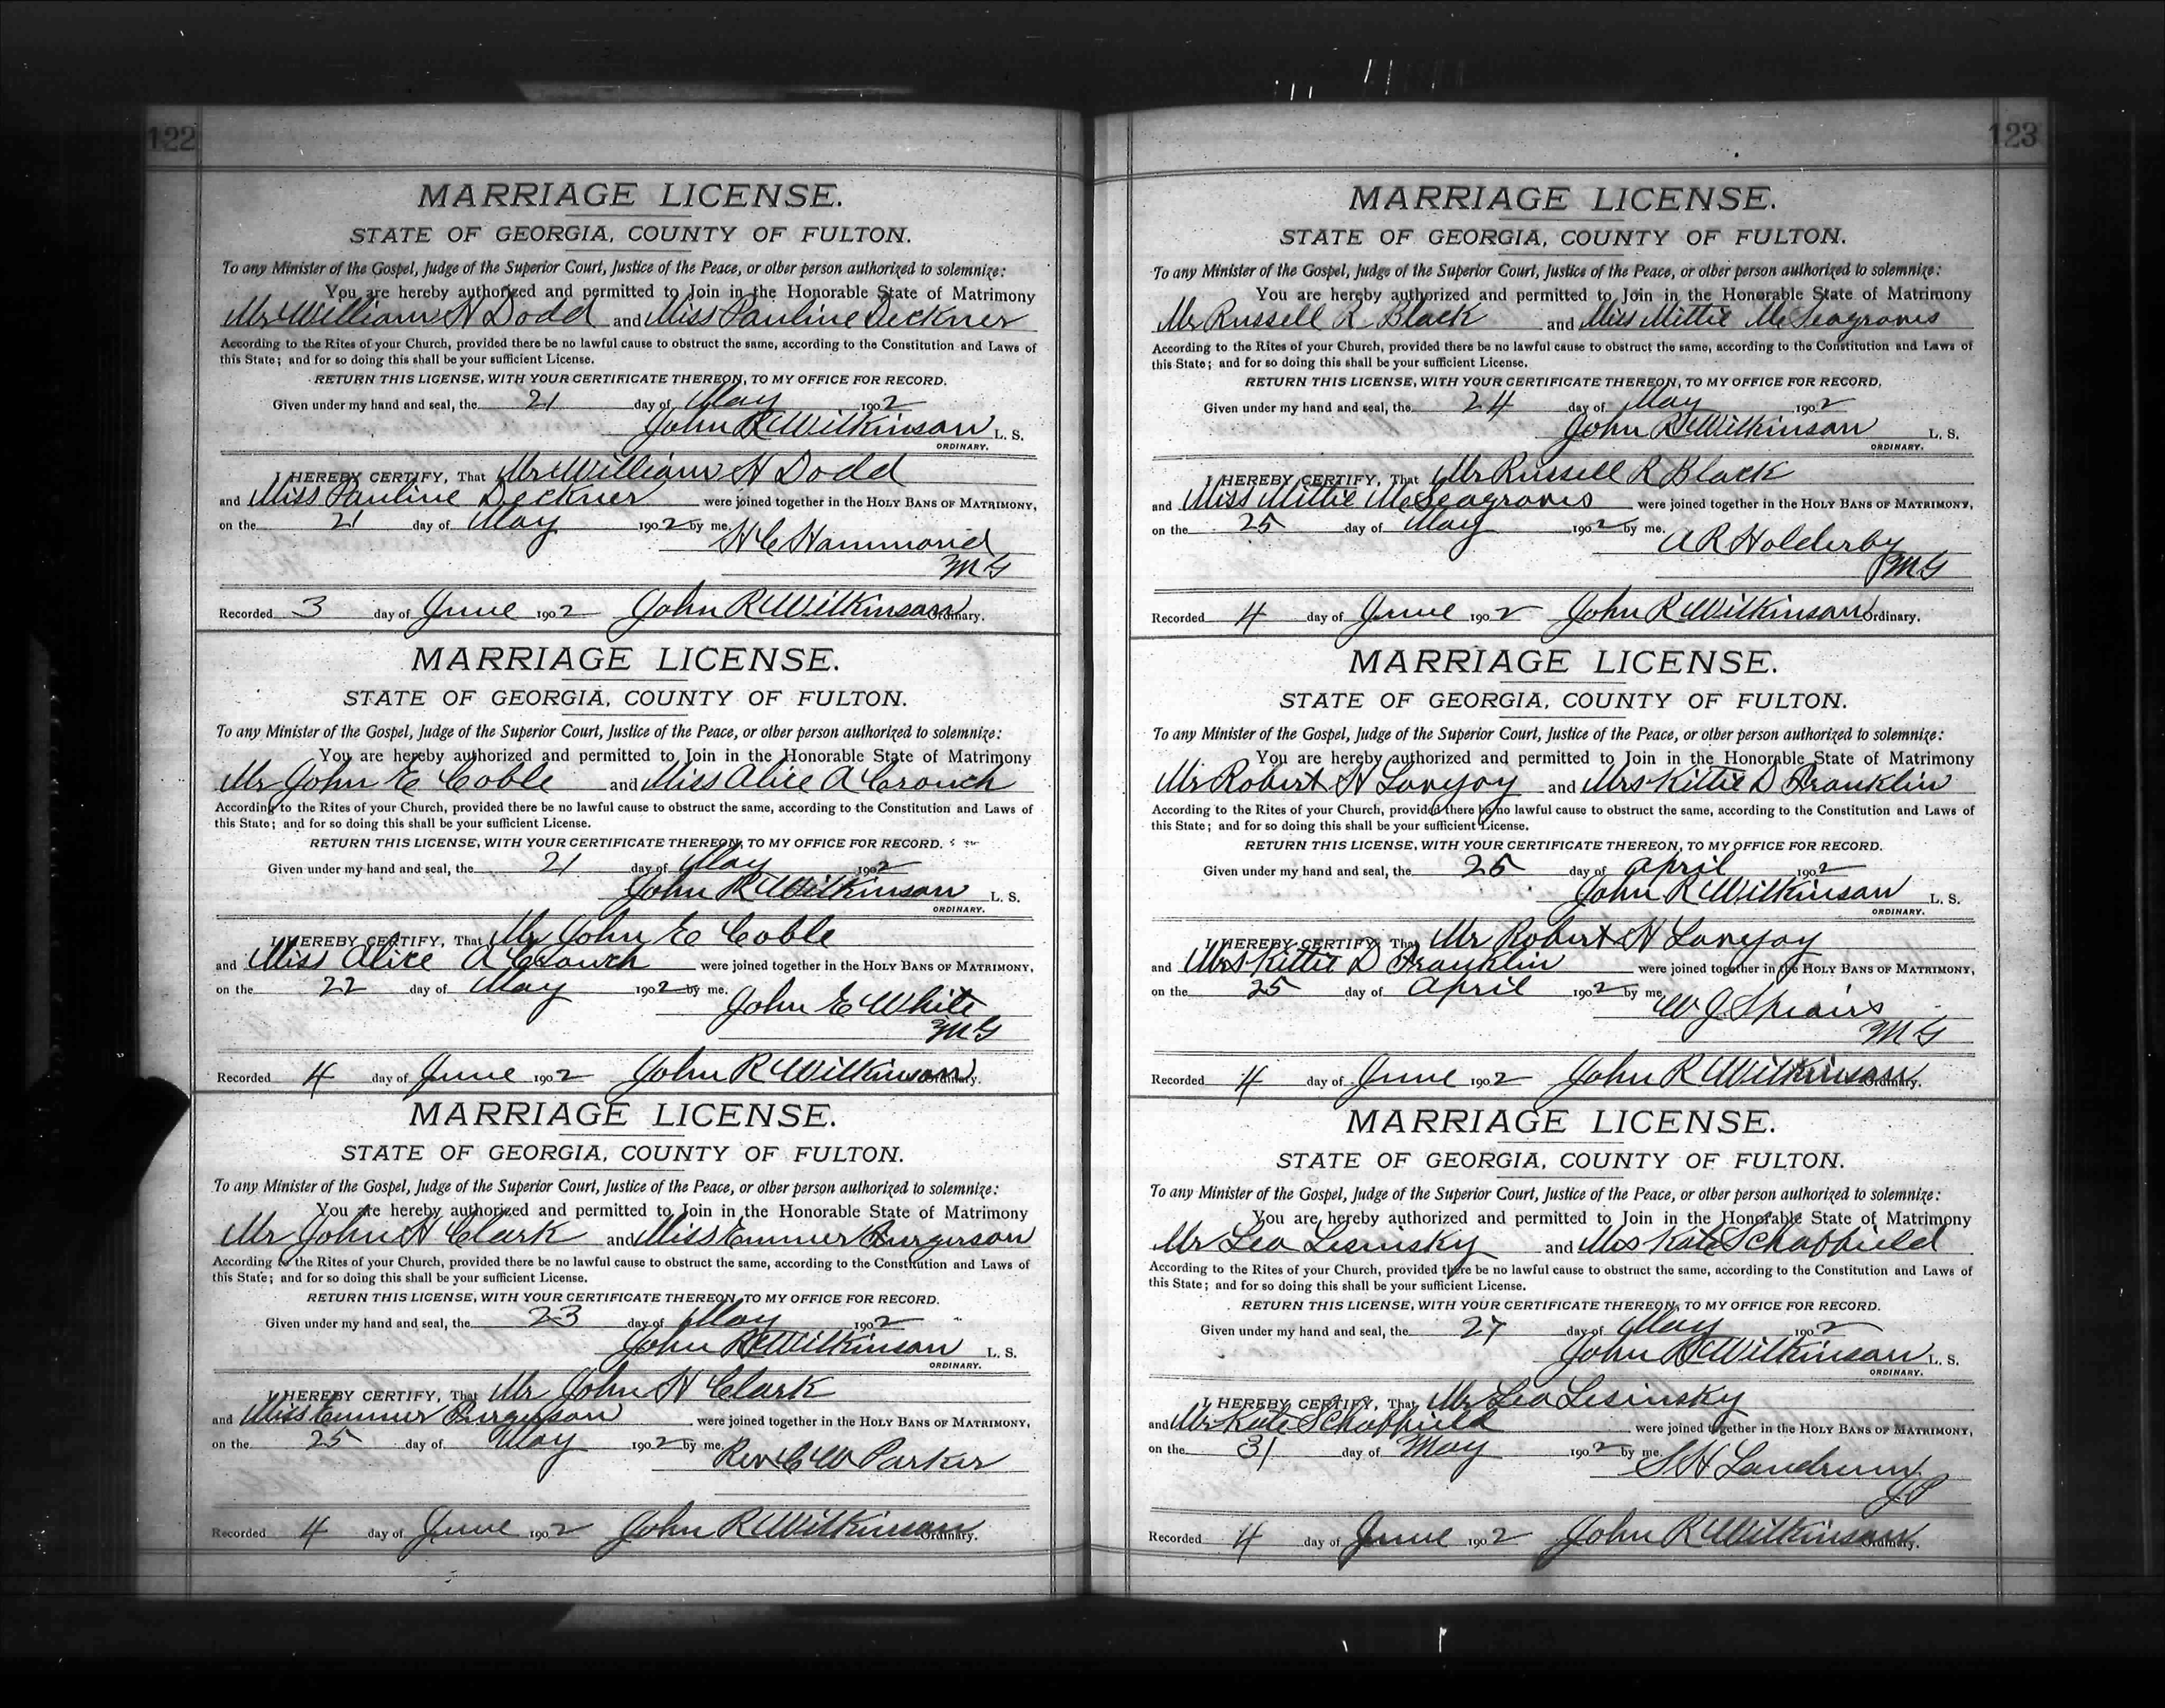 122
MARRIAGE LICENSE.
STATE OF GEORGIA, COUNTY OF FULTON.
To any Minister of the Gospel, Judge of the Superior Court, Justice of the Peace, or other person authorized to solemnize:
You are hereby authorized and permitted to Join in the Honorable State of Matrimony
Mr William H Dodd and Miss Pauline Deckner
According to the Rites of your Church, provided there be no lawful cause to obstruct the same, according to the Constitution and Laws of
this State; and for so doing this shall be your sufficient License.
RETURN THIS LICENSE, WITH YOUR CERTIFICATE THEREON, TO MY OFFICE FOR RECORD.
Given under my hand and seal, the 21 day of May 1902
John R Wilkinson L. S.
ORDINARY.
I HEREBY CERTIFY, That Mr William H Dodd
and Miss Pauline Deckner were joined together in the HOLY BANS OF MATRIMONY,
on the 21 day of May 1902 by me.
H C Hammond
MG
Recorded 3 day of June 1902 John R Wilkinson Ordinary.
MARRIAGE LICENSE.
STATE OF GEORGIA, COUNTY OF FULTON.
To any Minister of the Gospel, Judge of the Superior Court, Justice of the Peace, or other person authorized to solemnize:
You are hereby authorized and permitted to Join in the Honorable State of Matrimony
Mr John E Coble and Miss Alice A Crouch
According to the Rites of your Church, provided there be no lawful cause to obstruct the same, according to the Constitution and Laws of
this State; and for so doing this shall be your sufficient License.
RETURN THIS LICENSE, WITH YOUR CERTIFICATE THEREON, TO MY OFFICE FOR RECORD.
Given under my hand and seal, the 21 day of May 1902
John R Wilkinson L. S.
ORDINARY.
I HEREBY CERTIFY, That Mr John E Coble
and Miss Alice A Crouch were joined together in the HOLY BANS OF MATRIMONY,
on the 22 day of May 1902 by me.
John E White
MG
Recorded 4 day of June 1902 John R Wilkinson Ordinary.
MARRIAGE LICENSE.
STATE OF GEORGIA, COUNTY OF FULTON.
To any Minister of the Gospel, Judge of the Superior Court, Justice of the Peace, or other person authorized to solemnize:
You are hereby authorized and permitted to Join in the Honorable State of Matrimony
Mr John H Clark and Miss Emmer Burgerson
According to the Rites of your Church, provided there be no lawful cause to obstruct the same, according to the Constitution and Laws of
this State; and for so doing this shall be your sufficient License.
RETURN THIS LICENSE, WITH YOUR CERTIFICATE THEREON, TO MY OFFICE FOR RECORD.
Given under my hand and seal, the 23 day of May 1902
John R Wilkinson L. S.
ORDINARY.
I HEREBY CERTIFY, That Mr John H Clark
and Miss Emmer Burgerson were joined together in the HOLY BANS OF MATRIMONY,
on the 25 day of May 1902 by me.
Rev C W Parker
Recorded 4 day of June 1902 John R Wilkinson Ordinary.
123
MARRIAGE LICENSE.
STATE OF GEORGIA, COUNTY OF FULTON.
To any Minister of the Gospel, Judge of the Superior Court, Justice of the Peace, or other person authorized to solemnize:
You are hereby authorized and permitted to Join in the Honorable State of Matrimony
Mr Russell R Black and Miss Mittie M Seagraves
According to the Rites of your Church, provided there be no lawful cause to obstruct the same, according to the Constitution and Laws of
this State; and for so doing this shall be your sufficient License.
RETURN THIS LICENSE, WITH YOUR CERTIFICATE THEREON, TO MY OFFICE FOR RECORD.
Given under my hand and seal, the 24 day of May 1902
John R Wilkinson L. S.
ORDINARY.
I HEREBY CERTIFY, That Mr Russell R Black
and Miss Mittie M Seagraves were joined together in the HOLY BANS OF MATRIMONY,
on the 25 day of May 1902 by me.
A R Holderby
MG
Recorded 4 day of June 1902 John R Wilkinson Ordinary.
MARRIAGE LICENSE.
STATE OF GEORGIA, COUNTY OF FULTON.
To any Minister of the Gospel, Judge of the Superior Court, Justice of the Peace, or other person authorized to solemnize:
You are hereby authorized and permitted to Join in the Honorable State of Matrimony
Mr Robert H Lovejoy and Mrs Kittie D Franklin
According to the Rites of your Church, provided there be no lawful cause to obstruct the same, according to the Constitution and Laws of
this State; and for so doing this shall be your sufficient License.
RETURN THIS LICENSE, WITH YOUR CERTIFICATE THEREON, TO MY OFFICE FOR RECORD.
Given under my hand and seal, the 25 day of April 1902
John R Wilkinson L. S.
ORDINARY.
I HEREBY CERTIFY, That Mr Robert H Lovejoy
and Mrs Kittie D Franklin were joined together in the HOLY BANS OF MATRIMONY,
on the 25 day of April 1902 by me
W J Speairs
MG
Recorded 4 day of June 1902 John R Wilkinson Ordinary.
MARRIAGE LICENSE.
STATE OF GEORGIA, COUNTY OF FULTON.
To any Minister of the Gospel, Judge of the Superior Court, Justice of the Peace, or other person authorized to solemnize:
You are hereby authorized and permitted to Join in the Honorable State of Matrimony
Mr Leo Lesinsky and Mrs Kate Schoffield
According to the Rites of your Church, provided there be no lawful cause to obstruct the same, according to the Constitution and Laws of
this State; and for so doing this shall be your sufficient License.
RETURN THIS LICENSE, WITH YOUR CERTIFICATE THEREON, TO MY OFFICE FOR RECORD.
Given under my hand and seal, the 27 day of May 1902
John R Wilkinson L. S.
ORDINARY.
I HEREBY CERTIFY, That Mr Leo Lesinsky
and Mr Kate Schoffield were joined together in the HOLY BANS OF MATRIMONY,
on the 31 day of May 1902 by me.
S H Landrum
JP
Recorded 4 day of June 1902 John R Wilkinson Ordinary.